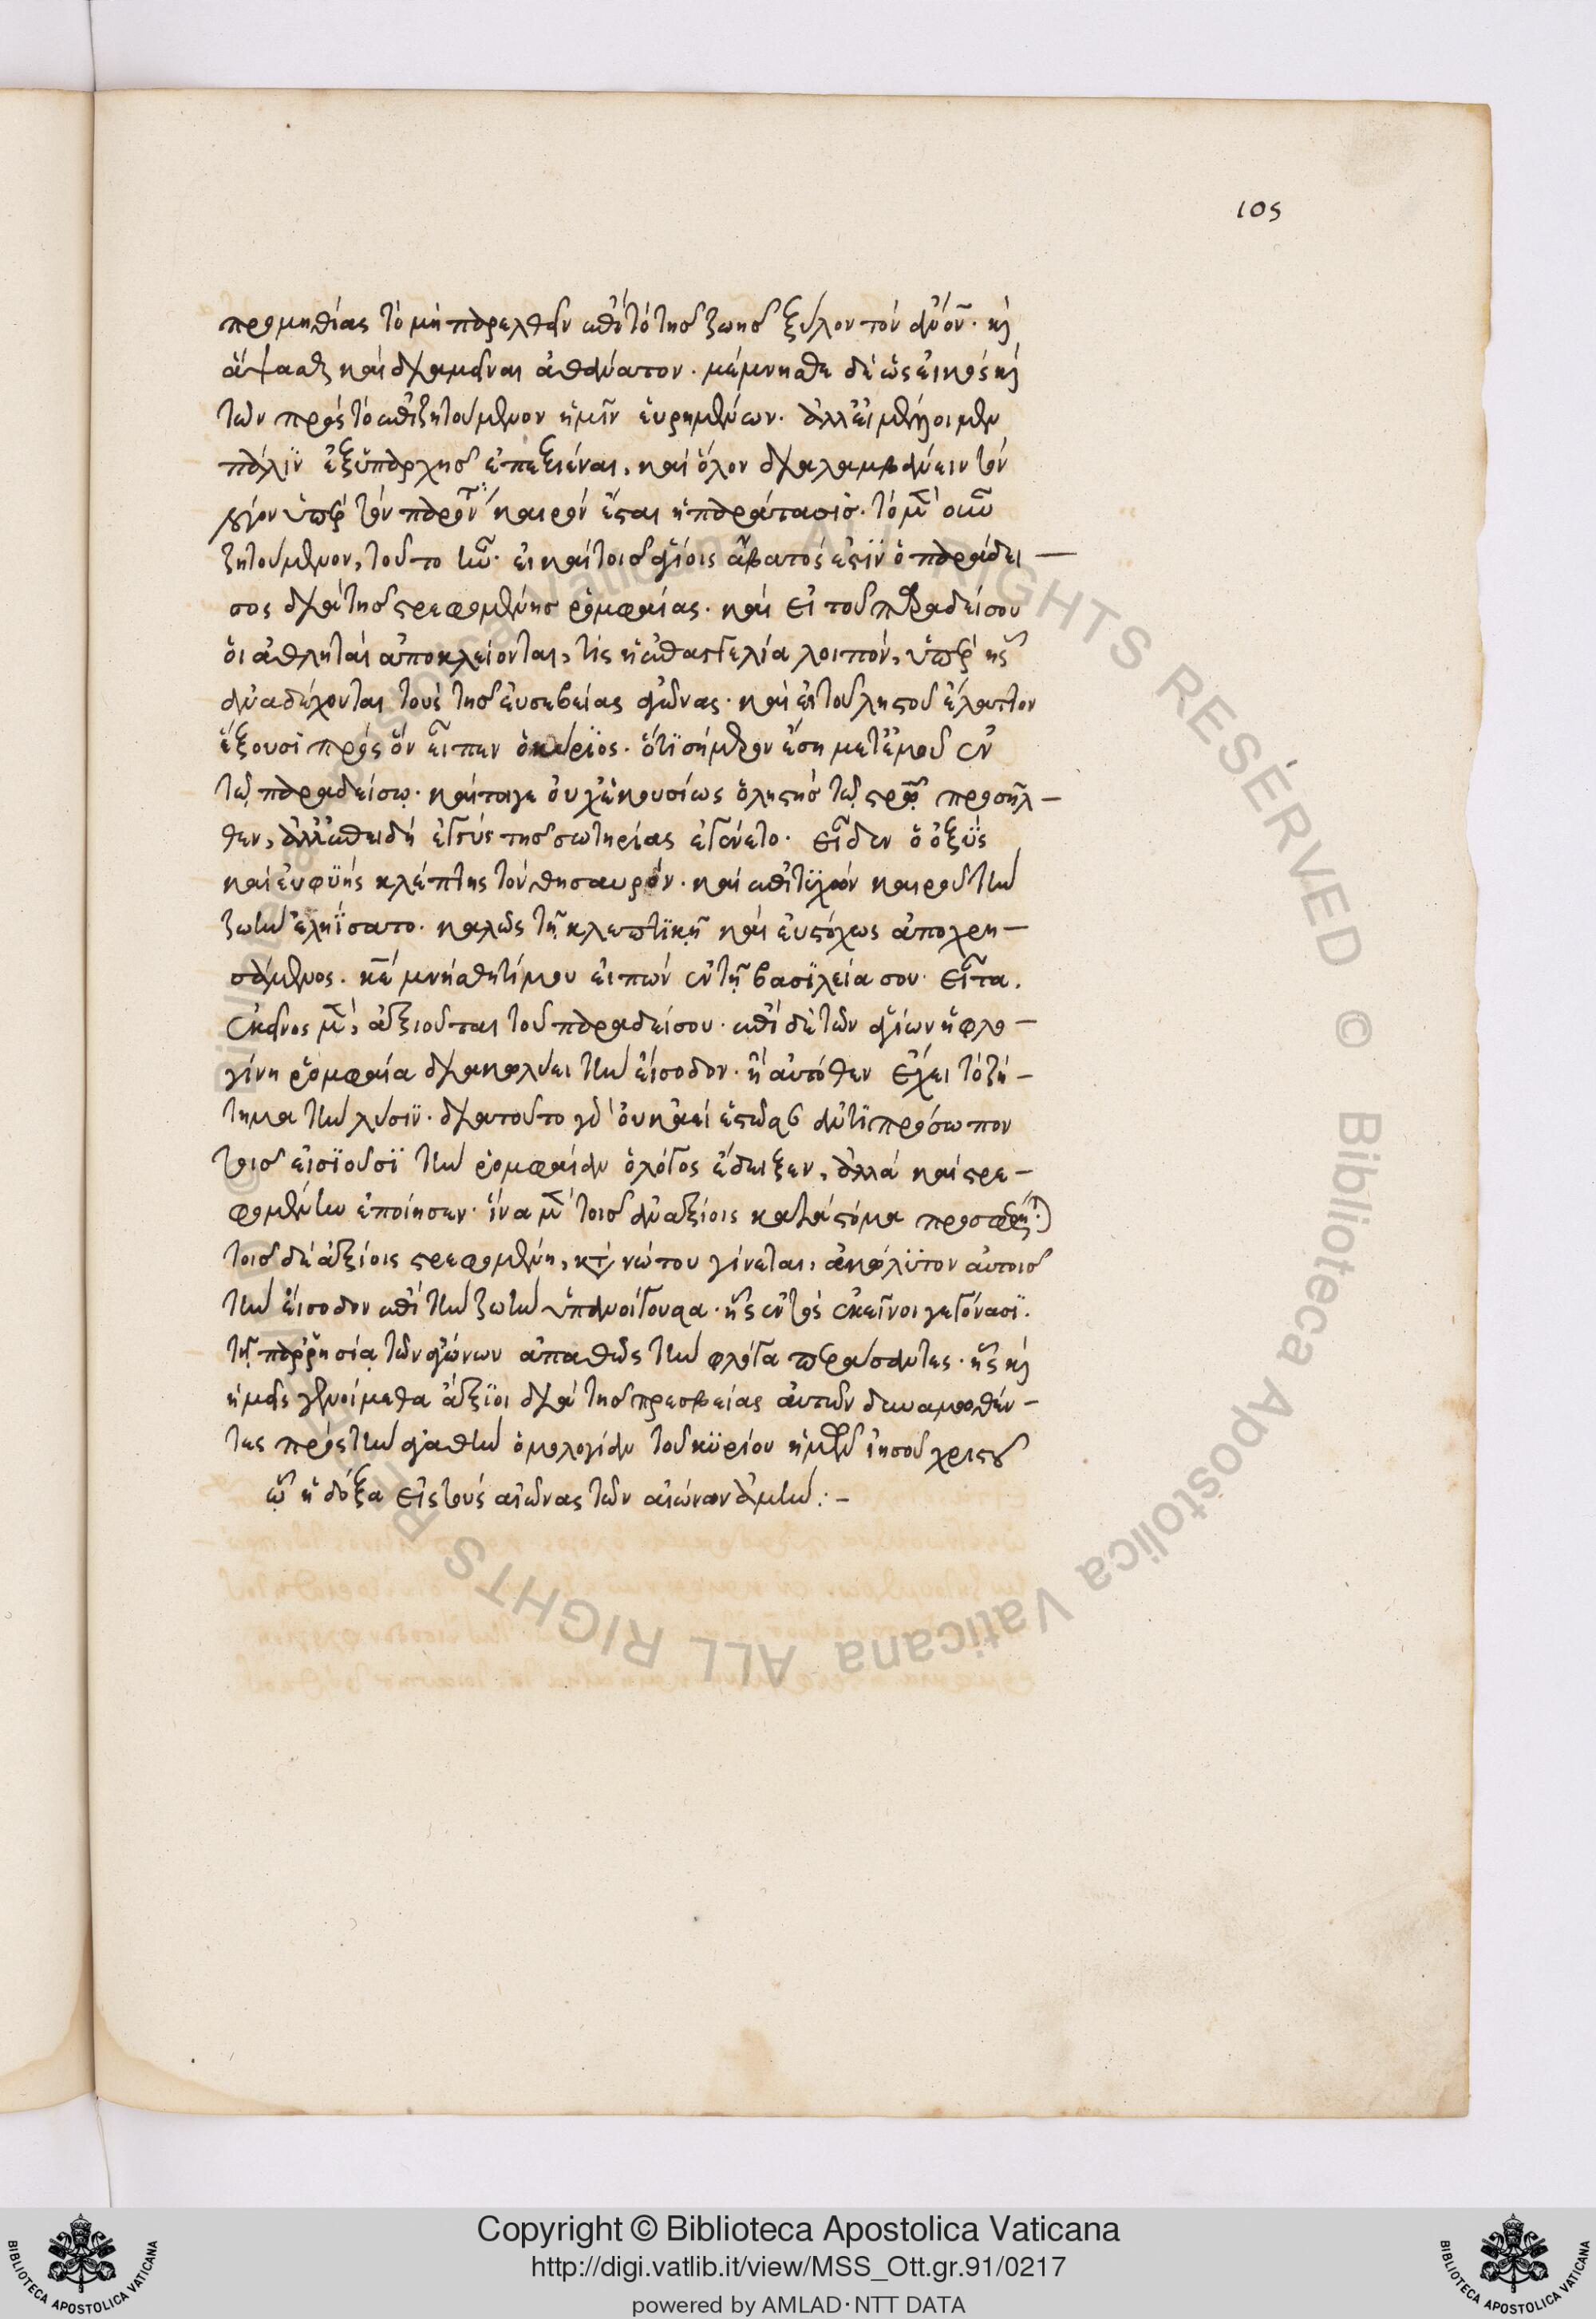 105
προμηθίας τὸ μὴ παρελθεῖν ἐπὶ τὸ τῆς ζωῆς ξύλον τὸν ἀνον· κ
ἅψασθαι καὶ διαμεῖναι ἀθάνατον· μέμνησθε δὲ ὡς εἰκὸς κ
τῶν πρὸς τὸ ἐπιζητούμενον ἡμῖν εὑρημένων· ἀλλ' εἰ μέλλοιμεν
πάλιν ἐξ ὑπαρχῆς ἐπεξιέναι, καὶ ὅλον διαλαμβάνειν τὸν
λόγον ὑπὲρ τὸν παρόντα καιρὸν ἔσται ἡ παράτασις· τὸ μὲν οὖν
ζητούμενον, τοῦτο ἦν· εἰ καὶ τοῖς ἁγίοις ἄβατός ἐστιν ὁ παράδει-
σος διὰ τῆς στρεφομένης ῥομφαίας· καὶ εἰ τοῦ παραδείσου
οἱ ἀθληταὶ ἀποκλείονται, τίς ἡ ἐπαγγελία λοιπόν, ὑπὲρ ἧς
ἀναδέχονται τοὺς τῆς εὐσεβείας ἀγῶνας· καὶ εἰ τοῦ λῃστοῦ ἔλαττον
ἕξουσι πρὸς ὃν εἶπεν ὁ κύριος· ὅτι σήμερον ἔσῃ μετ' ἐμοῦ ἐν
τῷ παραδείσῳ· καίτοιγε οὐχ ἑκουσίως ὁ λῃστὴς τῷ στρῷ προσῆλ-
θεν, ἀλλ' ἐπειδὴ ἐγγὺς τῆς σωτηρίας ἐγένετο· εἶδεν ὁ ὀξὺς
καὶ εὐφυὴς κλέπτης τὸν θησαυρόν· καὶ ἐπιτυχὼν καιροῦ τὴν
ζωὴν ἐληΐσατο· καλῶς τῇ κλεπτικῇ καὶ εὐστόχως ἀποχρη-
σάμενος· κε μνήσθητί μου εἰπὼν ἐν τῇ βασιλείᾳ σου· εἶτα.
ἐκεῖνος μὲν, ἀξιοῦται τοῦ παραδείσου· ἐπὶ δὲ τῶν ἁγίων ἡ φλο-
γίνη ῥομφαία διακωλύει τὴν εἴσοδον· ἢ αὐτόθεν ἔχει τὸ ζή-
τημα τὴν λύσιν· διὰ τοῦτο γὰρ οὐκ ἀεὶ ἑστῶσαν ἀντιπρόσωπον
τοῖς εἰσϊοῦσϊ τὴν ῥομφαίαν ὁ λόγος ἔδειξεν, ἀλλὰ καὶ στρε-
φομένην ἐποίησεν· ἵνα μὲν τοῖς ἀναξίοις κατὰ στόμα προσφέρηται·
τοῖς δὲ ἀξίοις στρεφομένη, κατὰ νώτου γίνεται, ἀκώλυτον αὐτοῖς
τὴν εἴσοδον ἐπὶ τὴν ζωὴν ὑπανοίγουσα· ἧς ἐντὸς ἐκεῖνοι γεγόνασϊ.
τῇ παρρησίᾳ τῶν ἀγώνων ἀπαθῶς τὴν φλόγα περάσαντες· ἧς κ
ἡμεῖς γενοίμεθα ἄξϊοι διὰ τῆς πρεσβείας αὐτῶν δυναμωθέν-
τες πρὸς τὴν ἀγαθὴν ὁμολογίαν τοῦ κυρίου ἡμῶν ἰησοῦ χριστοῦ
ᾧ ἡ δόξα εἰς τοὺς αἰῶνας τῶν αἰώνων ἀμήν:-
© Biblioteca Apostolica Vaticana ALL RIGHTS RESERVED © Biblioteca Apostolica Vaticana ALL RIGHTS R
BIBLIOTECA APOSTOLICA VATICANA
Copyright © Biblioteca Apostolica Vaticana
http://digi.vatlib.it/view/MSS_Ott.gr.91/0217
powered by AMLAD·NTT DATA
BIBLIOTECA APOSTOLICA VATICANA